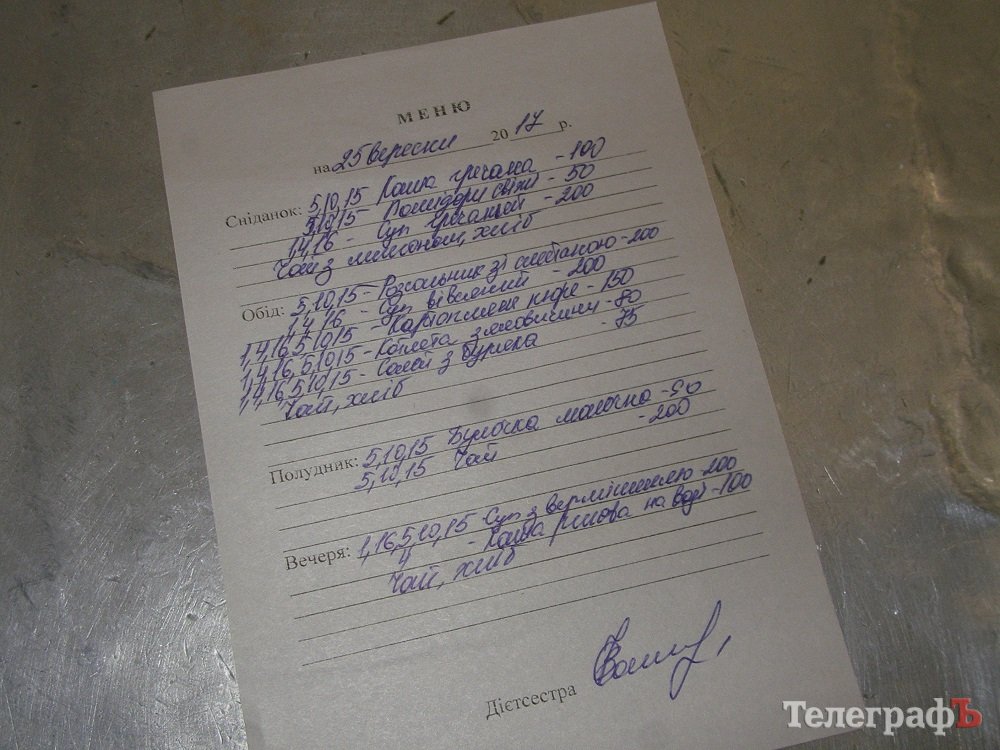 МЕНЮ
на 25 вересня 2017 р.
Сніданок: 5,10,15 Каша гречана - 100
5,10,15 - Помідори свіжі - 50
1,4,16 - Суп гречаний - 200
Чай з лимоном, хліб
Обід: 5,10,15 - Розсольник зі сметаною - 200
1,4,16 - Суп вівсяний - 200
1,4,16,5,10,15 - Картопляне пюре - 150
1,4,16,5,10,15 - Котлета з яловичини - 80
1,4,16,5,10,15 - Салат з буряка - 75
Чай, хліб
Полудник: 5,10,15 Булочка молочна - 90
5,10,15 Чай - 200
Вечеря: 1,16,5,10,15 Суп з вермішеллю - 200
4 - Каша рисова на воді - 100
Чай, хліб
Дієтсестра
ТелеграфЪ